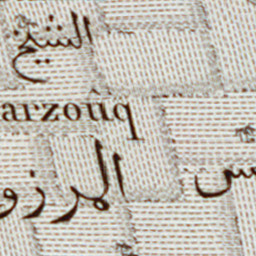 الشيخ
arzoûq
المرزو